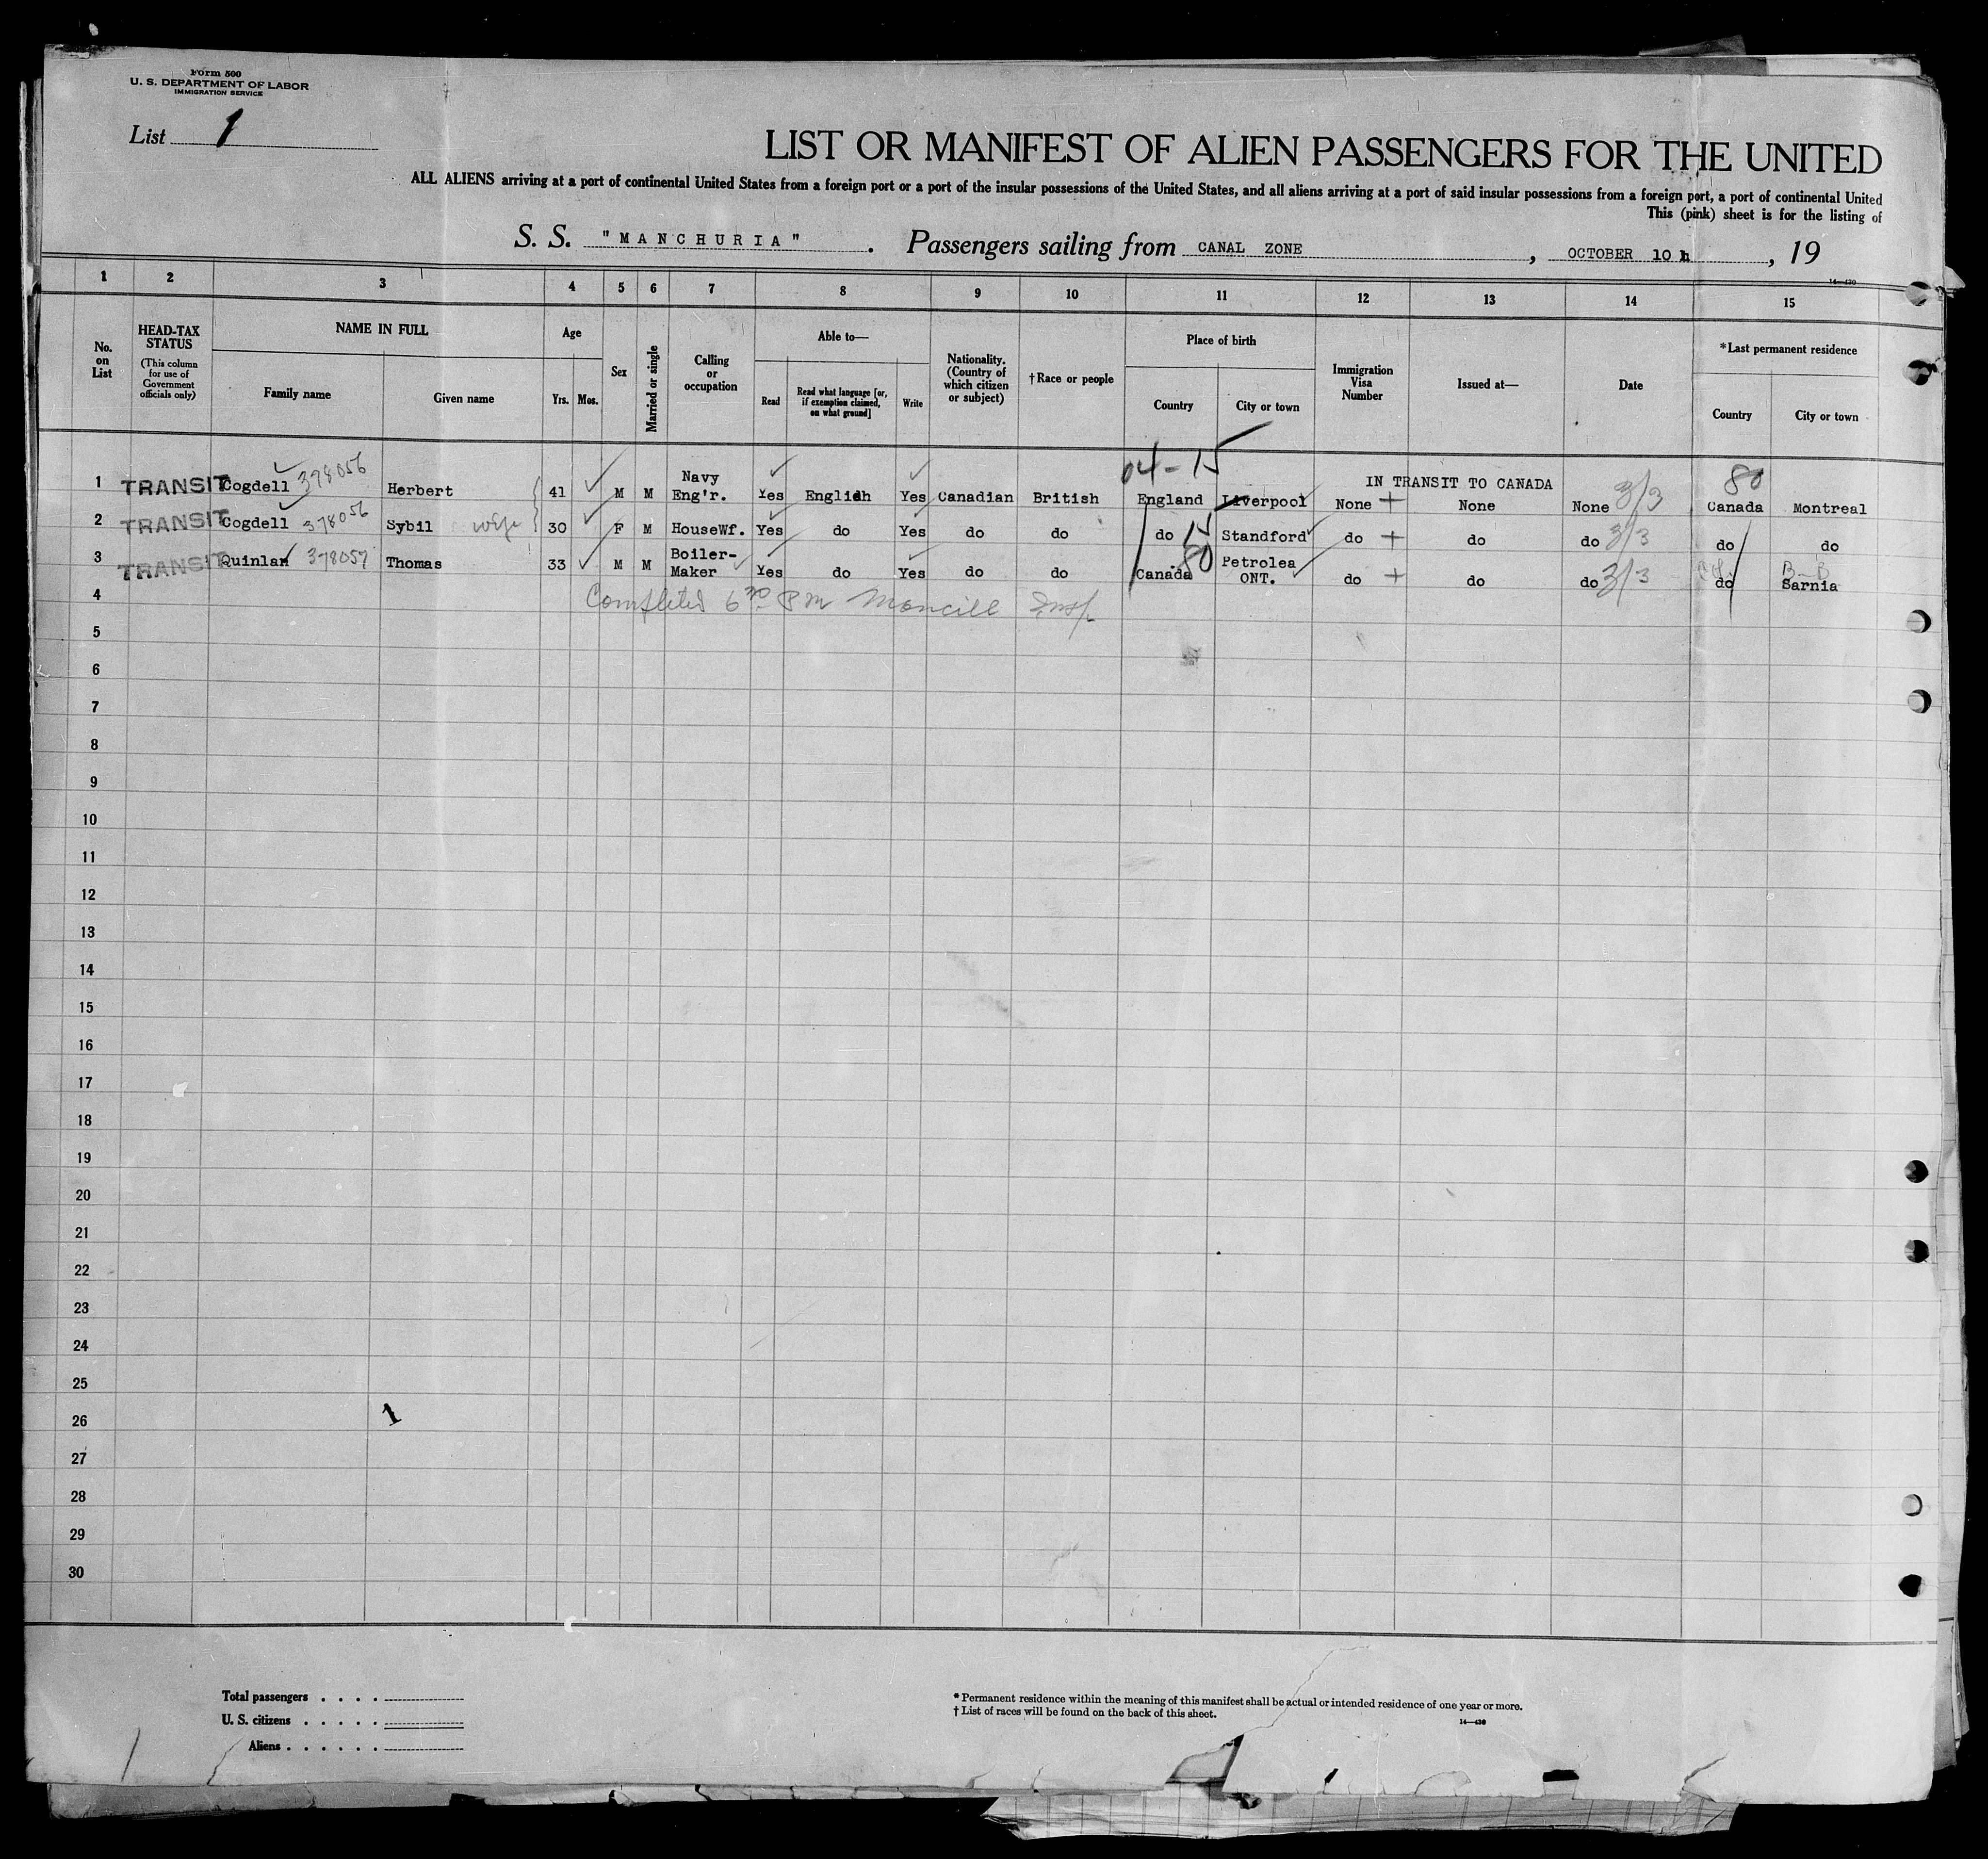 Form 500
U. S. DEPARTMENT OF LABOR
IMMIGRATION SERVICE
List 1
LIST OR MANIFEST OF ALIEN PASSENGERS FOR THE UNITED
ALL ALIENS arriving at a port of continental United States from a foreign port or a port of the insular possessions of the United States, and all aliens arriving at a port of said insular possessions from a foreign port, a port of continental United
This (pink) sheet is for the listing of
S. S. "MANCHURIA". Passengers sailing from CANAL ZONE, OCTOBER 10, 19
14—430
1 2 3 4 5 6 7 8 9 10 11 12 13 14 15
No. on List
HEAD-TAX STATUS
(This column for use of Government officials only)
NAME IN FULL
Family name
Given name
Age
Yrs. Mos.
Sex
Married or single
Calling or occupation
Able to—
Read
Read what language [or, if exemption claimed, on what ground]
Write
Nationality. (Country of which citizen or subject)
†Race or people
Place of birth
Country
City or town
Immigration Visa Number
Issued at—
Date
*Last permanent residence
Country
City or town
04-15
IN TRANSIT TO CANADA
80
1 TRANSIT Cogdell 378056 Herbert 41 M M Navy Eng'r. Yes English Yes Canadian British England Liverpool None + None None 3/3 Canada Montreal
2 TRANSIT Cogdell 378056 Sybil wife 30 F M HouseWf. Yes do Yes do do do 15 Standford do + do do 3/3 do do
3 TRANSIT Quinlan 378057 Thomas 33 M M Boiler-Maker Yes do Yes do do Canada 80 Petrolea ONT. do + do do 3/3 do B-B Sarnia
4 Completed 6 30 PM
5
6
7
8
9
10
11
12
13
14
15
16
17
18
19
20
21
22
23
24
25
26 1
27
28
29
30
Total passengers . . . .
U. S. citizens . . . . .
Aliens . . . . . .
* Permanent residence within the meaning of this manifest shall be actual or intended residence of one year or more.
† List of races will be found on the back of this sheet.
14—430